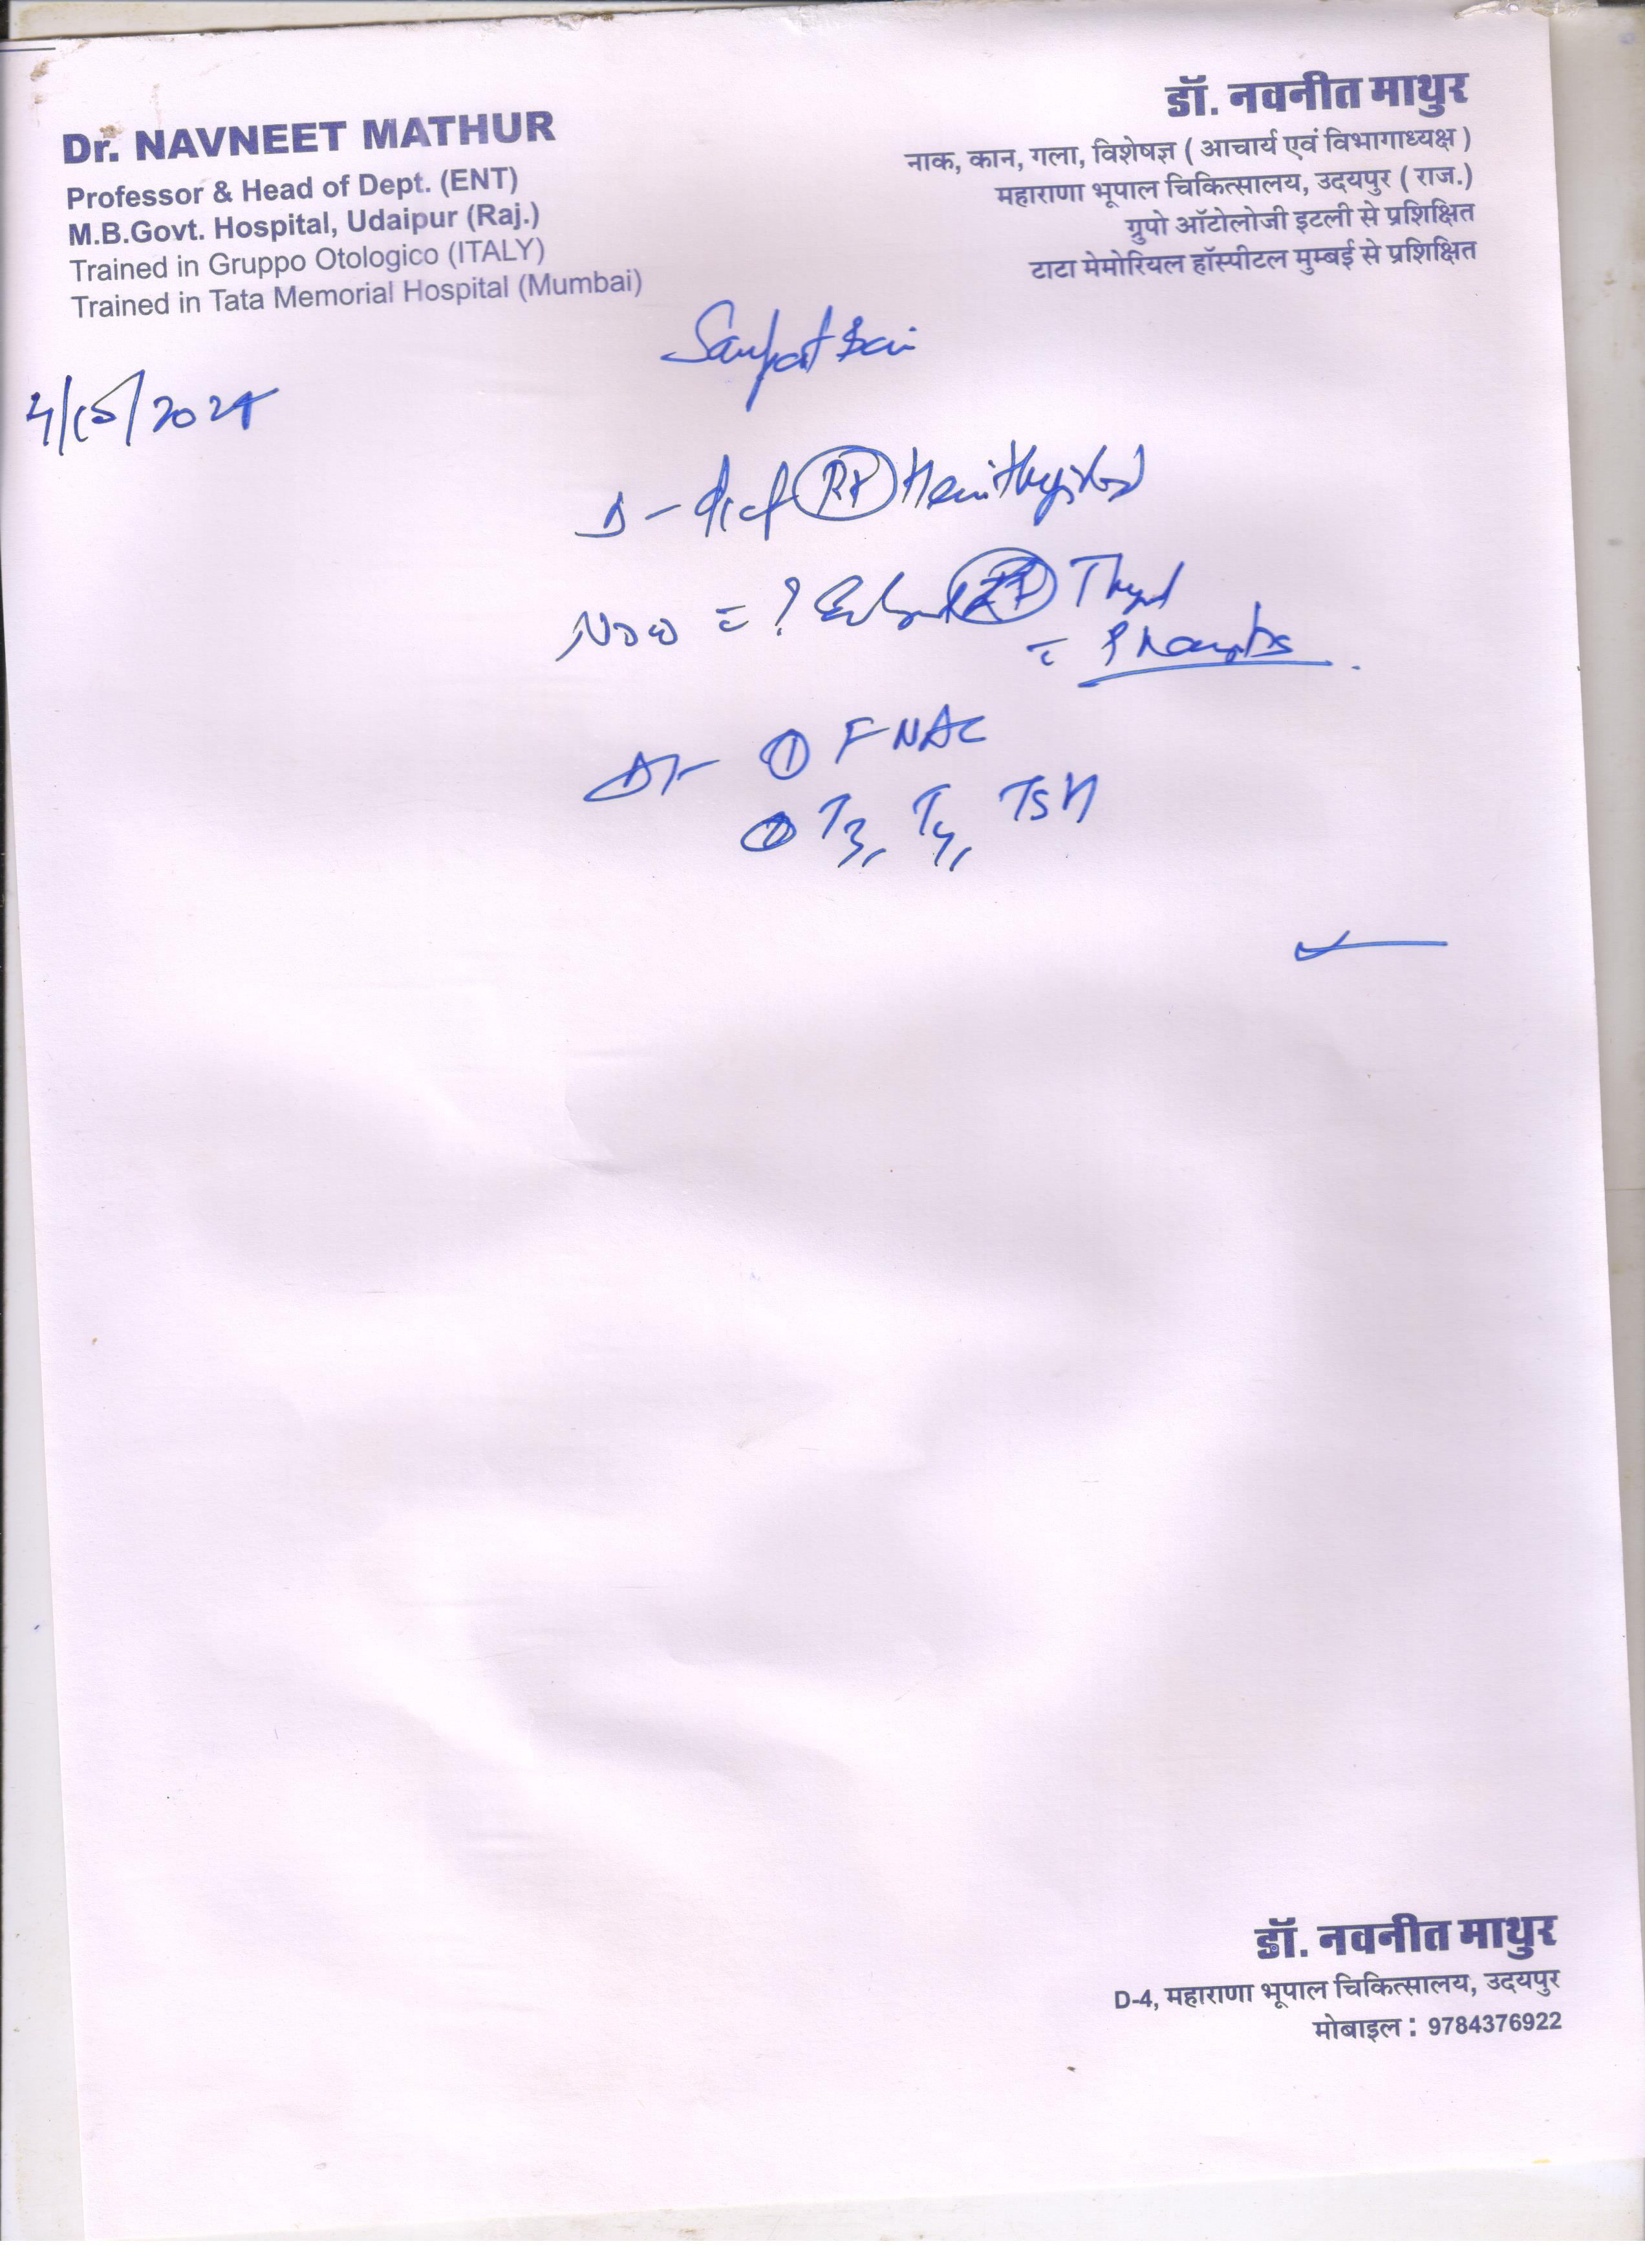 Dr. NAVNEET MATHUR
Professor & Head of Dept. (ENT)
M.B.Govt. Hospital, Udaipur (Raj.)
Trained in Gruppo Otologico (ITALY)
Trained in Tata Memorial Hospital (Mumbai)
डॉ. नवनीत माथुर
नाक, कान, गला, विशेषज्ञ ( आचार्य एवं विभागाध्यक्ष )
महाराणा भूपाल चिकित्सालय, उदयपुर ( राज.)
ग्रुपो ऑटोलोजी इटली से प्रशिक्षित
टाटा मेमोरियल हॉस्पीटल मुम्बई से प्रशिक्षित
Bai
RT
Now = ?
① FNAC
T3, T4, TSH
डॉ. नवनीत माथुर
D-4, महाराणा भूपाल चिकित्सालय, उदयपुर
मोबाइल : 9784376922